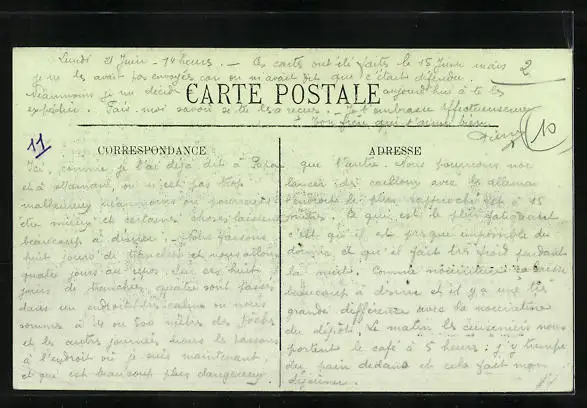 Lundi 21 Juin - 14 heures. - Ces cartes ont été faites le 18 Juin mais
2
je ne les avait pas envoyés car on m'avait dit que c'était défendu.
Néanmoins je me décide aujourd'hui à te les
CARTE POSTALE
expédier. Fais-moi savoir si tu les a reçues. Je t'embrasse affectueusement
Ton frère qui t'aime bien.
10
11
CORRESPONDANCE
Ici, comme je l'ai déjà dit à Papa
et à Maman, on n'est pas trop
malheureux néanmoins on pourrait
être mieux et certaines choses laissent
beaucoup à désirer. Nous faisons
huit jours de tranchée et nous allons
quatre jours au repos. Sur ces huit
jours de tranchées, quatre sont passés
dans un endroit où nous
sommes à 500 mètres des boches
et les autres journées, nous les passons
à l'endroit où je suis maintenant
et qui est beaucoup plus dangereux
ADRESSE
que l'autre. Nous pourrions nous
lancer des cailloux avec les allemands
l'endroit le plus rapproché est à 15
mètres. Ce qui est le plus fatiguant
c'est qu'il est presque impossible de
dormir et qu'il fait très froid pendant
la nuit. Comme nourriture ça laisse
beaucoup à désirer et il y a une très
grande différence avec la nourriture
du dépôt. Le matin les cuisiniers nous
portent le café à 5 heures : j'y trempe
du pain dedans et cela fait mon
déjeuner.